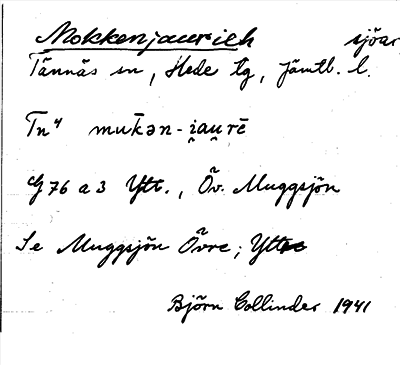 Mokkenjaurieh sjöar
Tännäs sn, Hede tg, Jämtl. l.
Tn⁴ mukən-i̯au̯rē
G 76 a 3 Ytt., Öv. Muggsjön
Se Muggsjön Övre; Yttre
Björn Collinder 1941